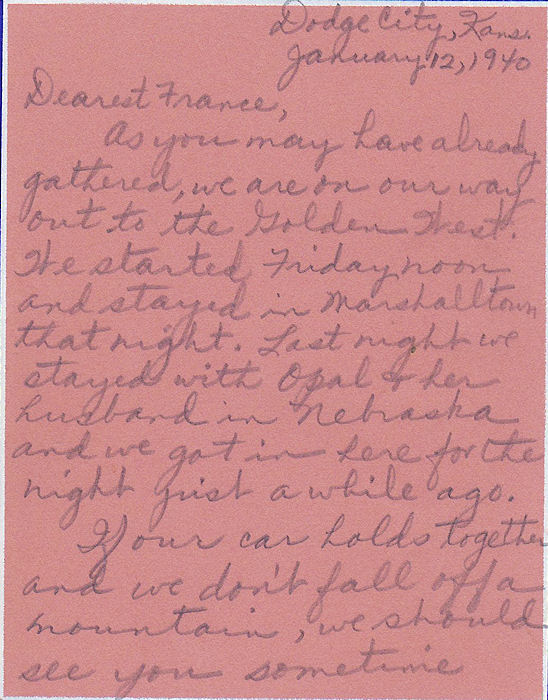 Dodge City, Kans.
January 12, 1940
Dearest France,
As you may have already
gathered, we are on our way
out to the Golden West.
We started Friday noon
and stayed in Marshalltown
that night. Last night we
stayed with Opal & her
husband in Nebraska
and we got in here for the
night just a while ago.
If our car holds together
and we don't fall off a
mountain, we should
see you sometime